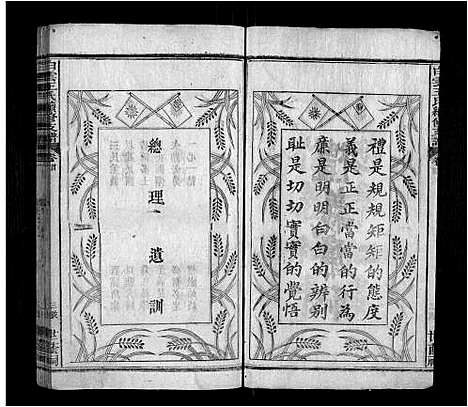 禮是規規矩矩的態度
義是正正當當的行為
廉是明明白白的辨別
恥是切切實實的覺悟
總理遺訓